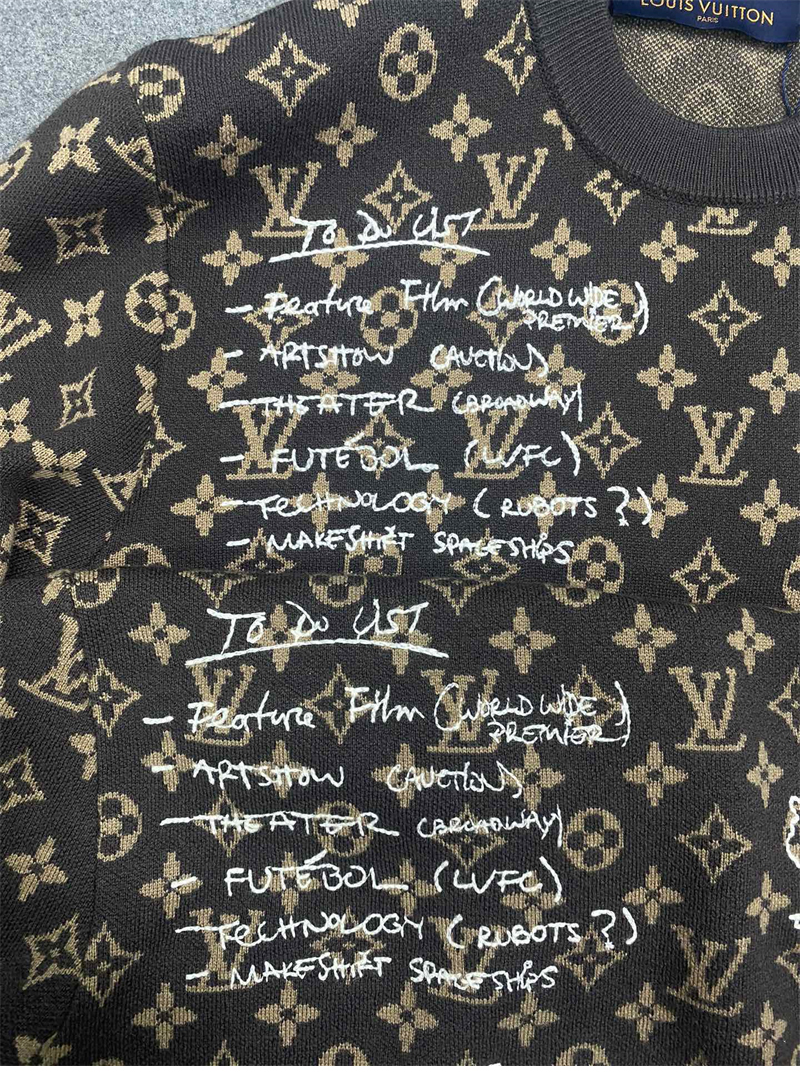 LOUIS VUITTON
PARIS
TO DO LIST
- Feature Film (WORLDWIDE
PREMIER)
- ARTSHOW (AUCTION)
- THEATER (BROADWAY)
- FUTEBOL (LVFC)
- TECHNOLOGY (ROBOTS?)
- MAKESHIFT SPACESHIPS
TO DO LIST
- Feature Film (WORLDWIDE
PREMIER)
- ARTSHOW (AUCTION)
- THEATER (BROADWAY)
- FUTEBOL (LVFC)
- TECHNOLOGY (ROBOTS?)
- MAKESHIFT SPACESHIPS